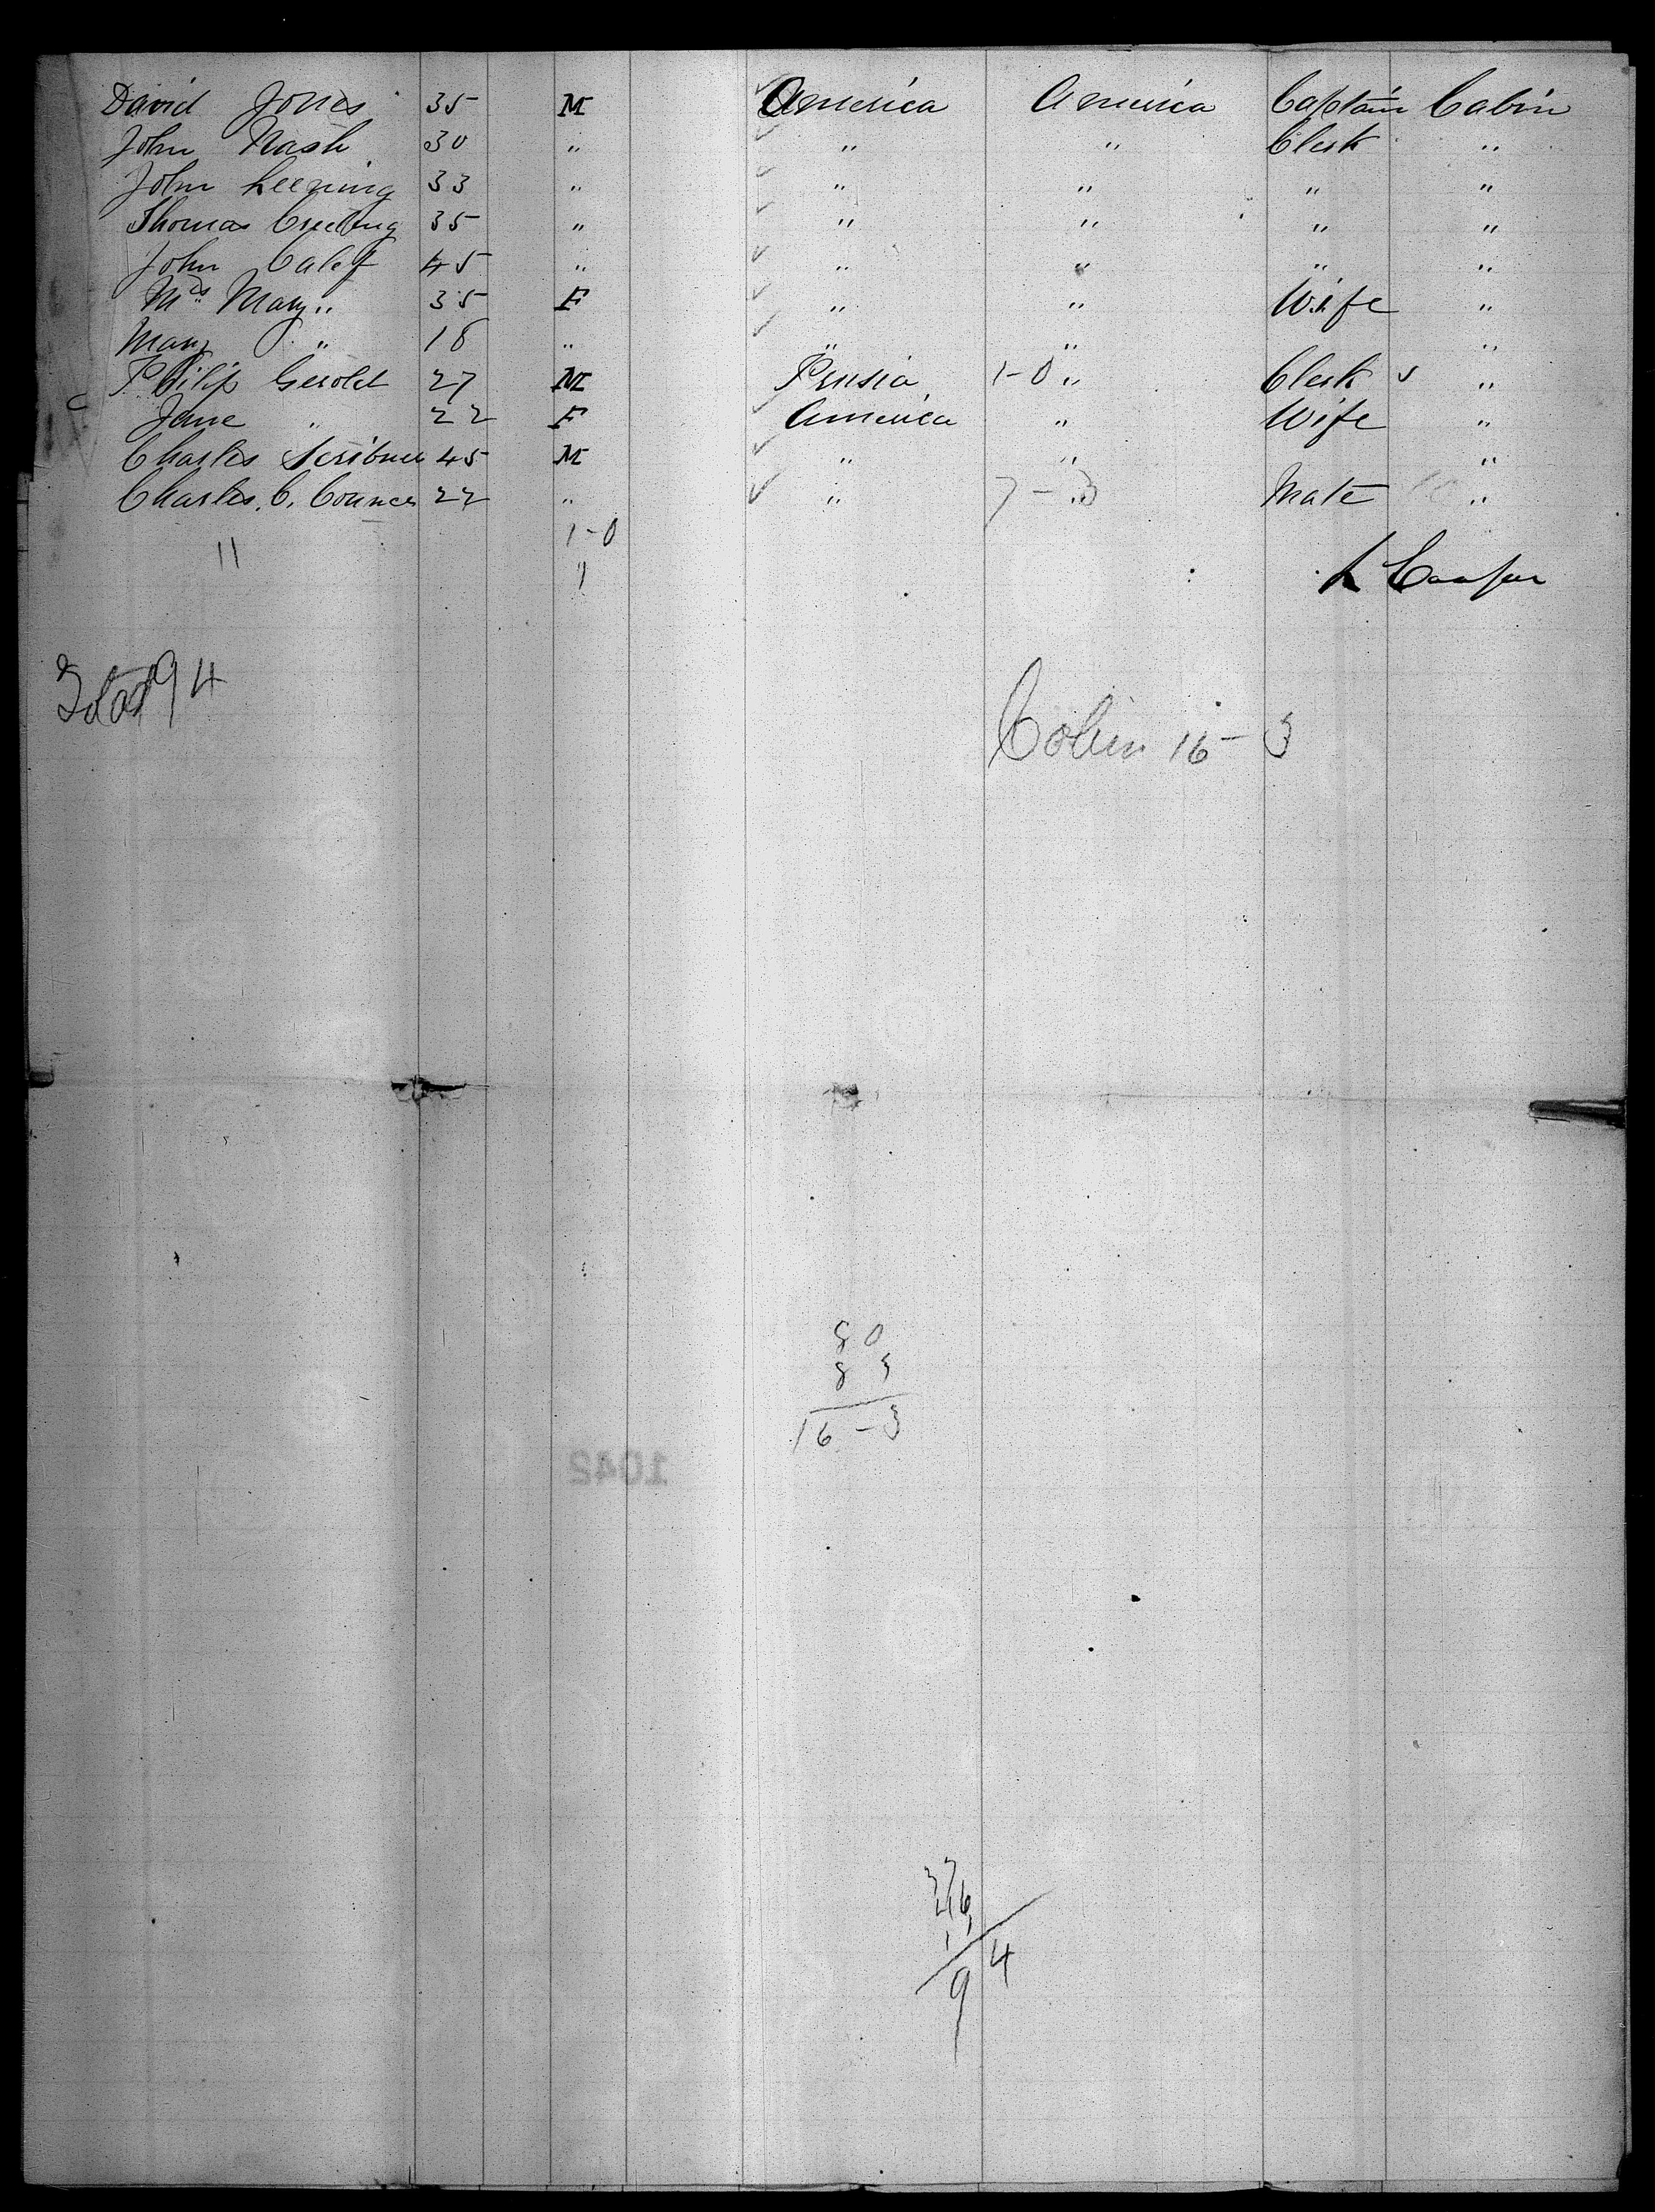 David Jones 35 M America America Captain Cabin
John Nash 30 " " " Clerk "
John Leening 33 " " " " "
Thomas 35 " " " " "
John Calef 45 " " " " "
Mrs Mary " 35 F " " Wife "
Mary " 18 " " " "
Philip Gerold 27 M Prusia 1-0 " Clerk "
Jane " 22 F America " Wife "
Charles Scribner 45 M " " "
Charles. C. 22 " " 7-3 " Mate "
1-0
11
L
Total 94
Cabin 16-3
80
83
16-3
1042
94